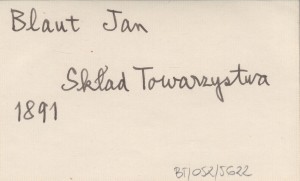 Blaut Jan
Skład Towarzystwa
1891
BT/052/5622